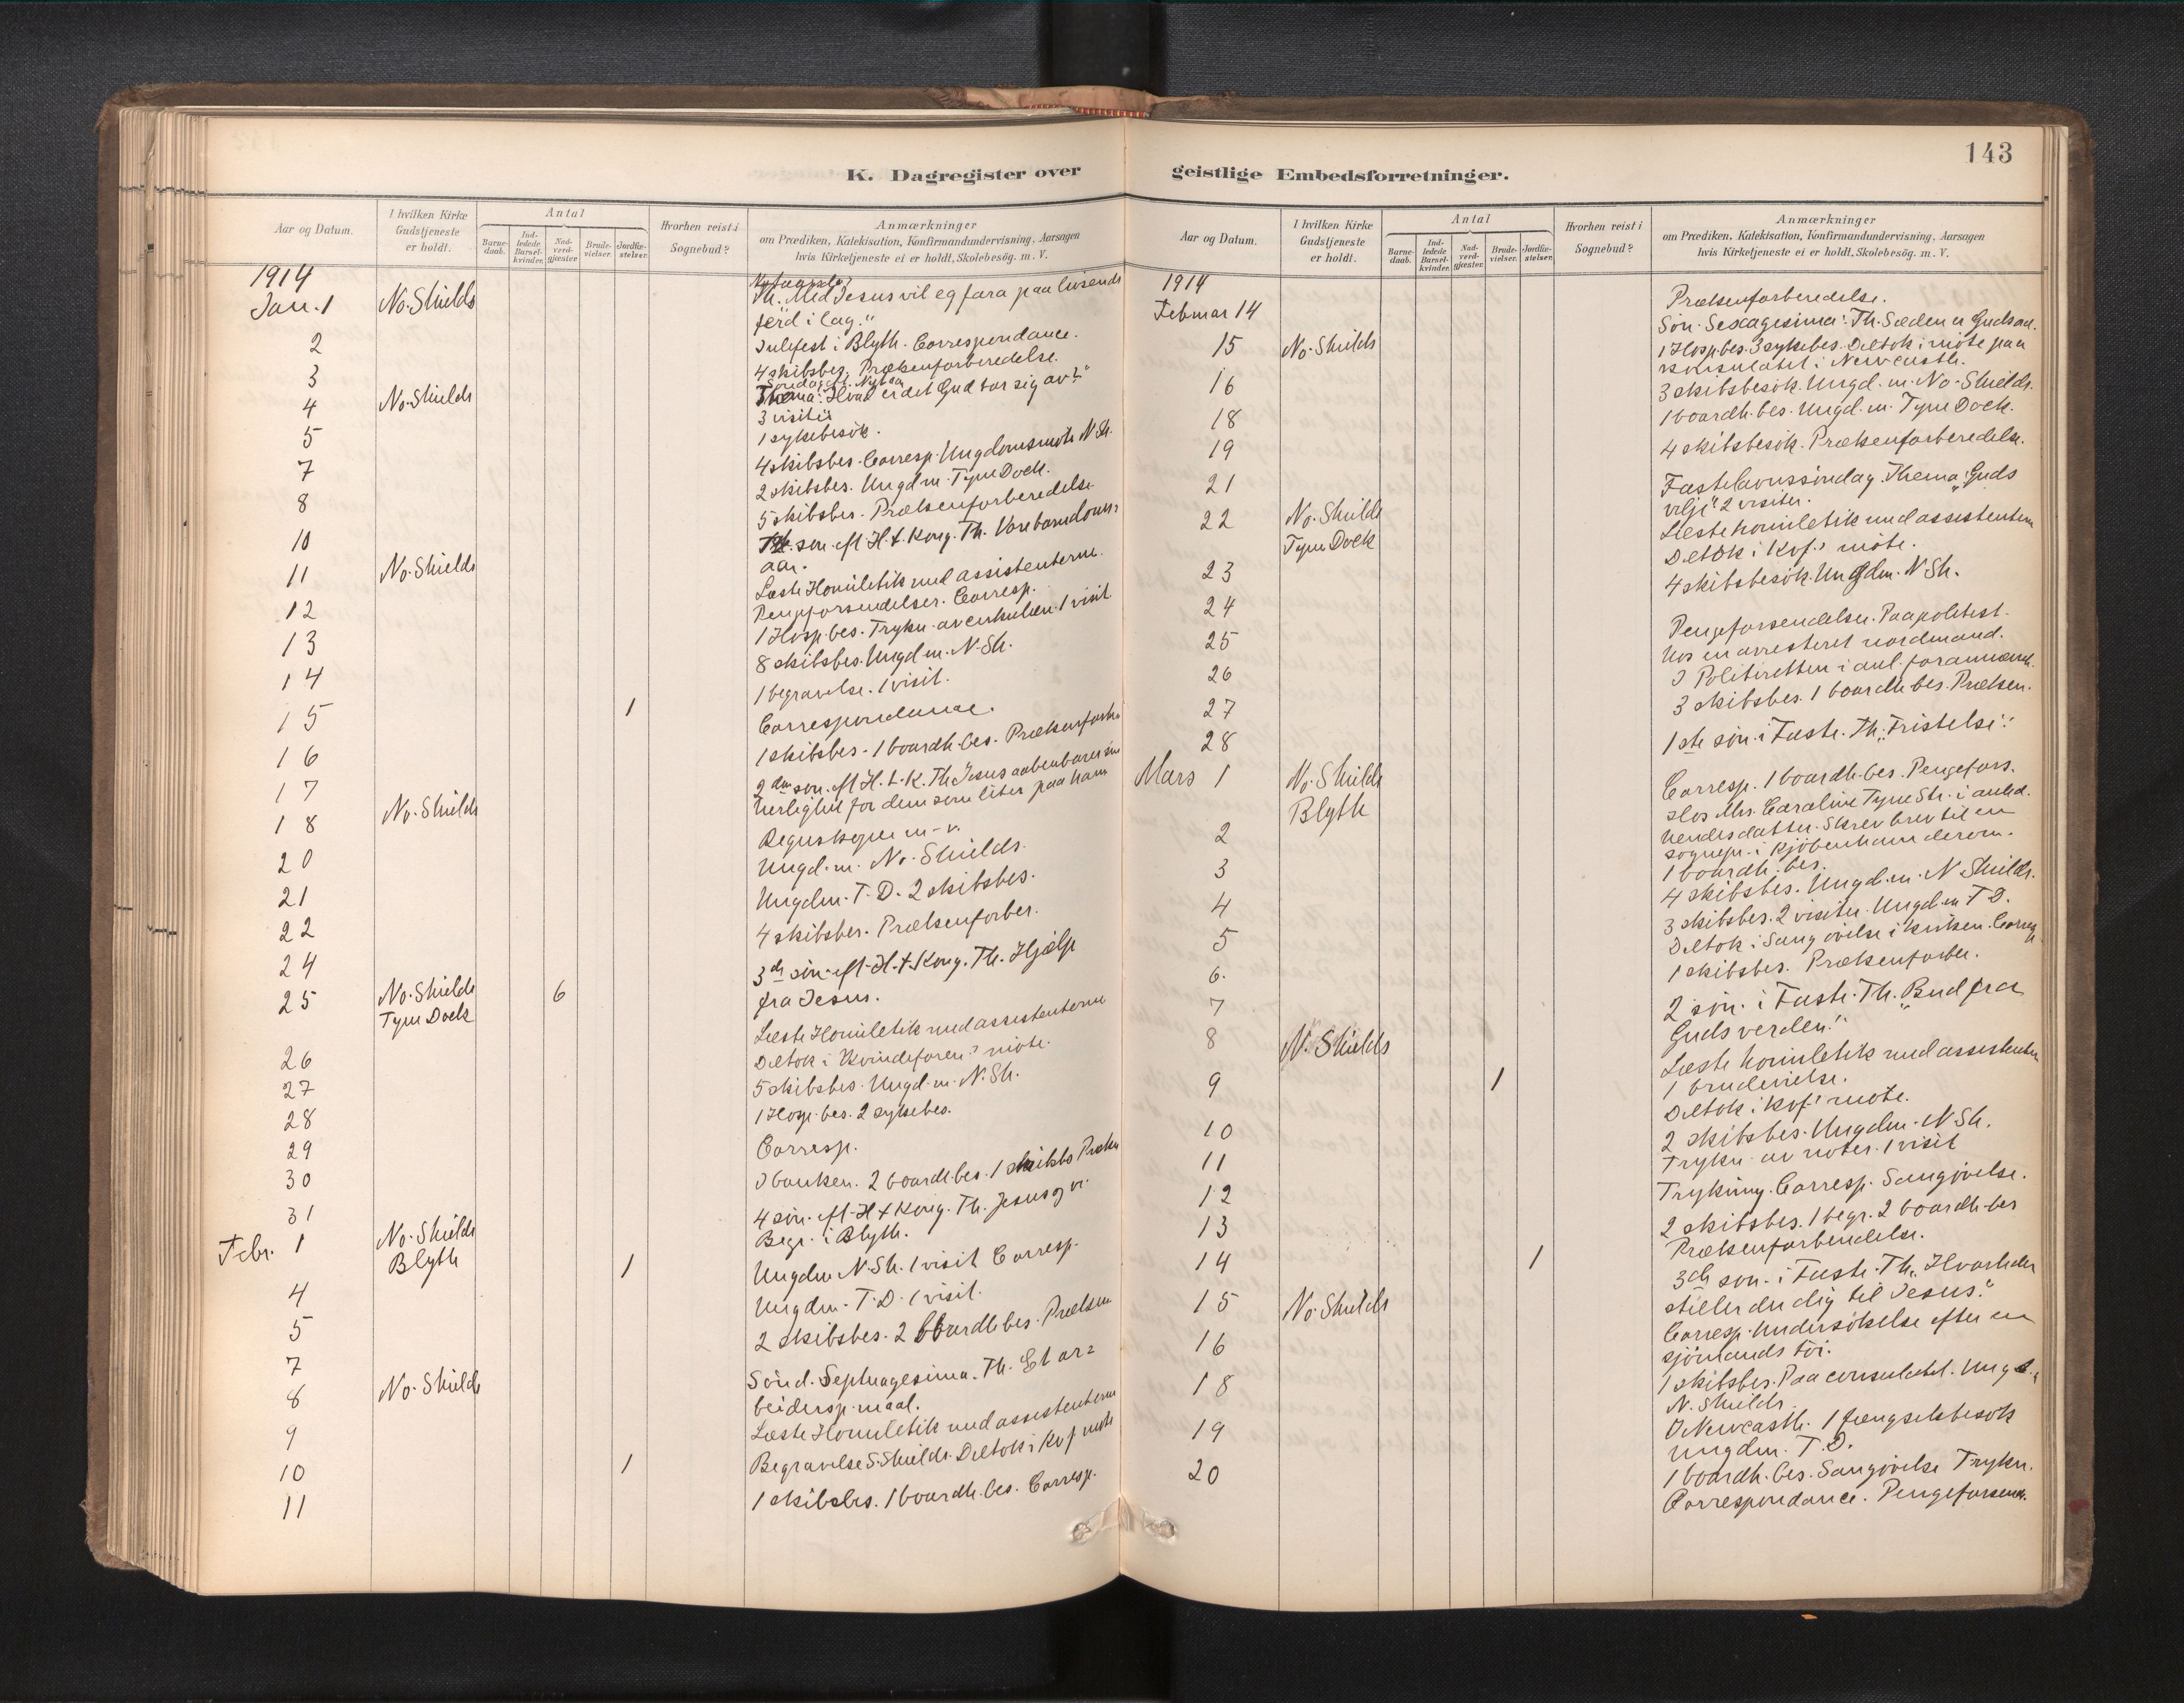 143
K. Dagregister over
Aar og Datum.
I hvilken Kirke Gudstjeneste er holdt.
Antal
Barne-daab.
Ind-ledede Barsel-kvinder.
Nad-verd-gjæster.
Brude-vielser.
Jordfæ-stelser.
Hvorhen reist i Sognebud?
Anmærkninger
om Prædiken, Katekisation, Konfirmandundervisning, Aarsagen
hvis Kirketjeneste ei er holdt, Skolebesøg. m. V.
1914
Jan. 1 No. Shields Th. Med Jesus vil eg fara paa livsends
ferd i lag."
2 Julefest i Blyth. Correspondance.
3 4 skibsbes. Prækenforberedelse.
Søndag eft. Nytaar
4 No. Shields Thema: Hvad er det Gud tar sig av?"
3 visiter
5 1 sykebesök.
7 4 skibsbes. Corresp. Ungdomsmöte N. Sh.
8 2 skibsbes. Ungd m. Tyne Dock.
10 5 skibsbes. Prækenforberedelse
11 No. Shields søn. eft H. 3 Kong. Th. Vore barndoms-
aar.
12 Læste Homiletik med assistenterne.
Pengeforsendelser. Corresp.
13 1 Hosp. bes. Trykn. av cirkulær. 1 visit
14 8 skibsbes. Ungd m. N. Sh.
15 1 1 begravelse. 1 visit.
16 Correspondance.
17 1 skibsbes. 1 boardh. bes. Prækenforbr
18 No. Shields 2den søn. eft H. 3 K. Th Jesus aabenbarer sin
herlighet for dem som liter paa ham
20 Regnskaper m. v.
21 Ungd. m. No. Shields.
22 Ungdm. T. D. 2 skibsbes.
24 4 skibsbes. Prækenforber.
25 No. Shields 6 3die søn. eft H. 3 Kong. Th. Hjælp
Tyne Dock fra Jesus.
26 Læste Homiletik med assistenterne
Deltok i Kvindeforen.s möte.
27 5 skibsbes. Ungd. m. N. Sh.
28 1 Hosp. bes. 2 sykebes.
29 Corresp.
30 I banken. 2 boardh. bes. 1 skibsbs Præken
31
Febr. 1 No. Shields 4 søn. eft H 3 Kong. Th. Jesus og vi.
Blyth 1 Begr. i Blyth.
4 Ungdm N. Sh. 1 visit Corresp.
5 Ungdm. T. D. 1 visit.
7 2 skibsbes. 2 boardh bes. Præken
8 No. Shields Sönd. Septuagesima. Th. Et ar-
beidersp. maal.
9 Læste Homiletik med assistenterne
10 1 Begravelse S. Shields. Deltok i Kvf möte
11 1 skibsbes. 1 boardh. bes. Corresp.
geistlige Embedsforretninger.
Aar og Datum.
I hvilken Kirke Gudstjeneste er holdt.
Antal
Barne-daab.
Ind-ledede Barsel-kvinder.
Nad-verd-gjæster.
Brude-vielser.
Jordfæ-stelser.
Hvorhen reist i Sognebud?
Anmærkninger
om Prædiken, Katekisation, Konfirmandundervisning, Aarsagen
hvis Kirketjeneste ei er holdt, Skolebesøg. m. V.
1914
Februar 14 Prækenforberedelse.
15 No. Shields Søn. Sexagesima: Th. Sæden er Guds ord.
16 1 Hosp. bes. 3 sykebes. Deltok i möte paa
konsulatet i Newcastle.
18 3 skibsbesök. Ungd. m. No. Shields.
19 1 boardh. bes. Ungd. m. Tyne Dock.
21 4 skibsbesök. Prækenforberedelse.
22 No. Shields Fastelavnssöndag. Thema: „Guds
Tyne Dock vilje" 2 visiter.
23 Læste homiletik med assistenten
24 Deltok i Kvf.s möte.
25 4 skibsbesök. Ungdm. N. Sh.
26 Pengeforsendelser. Paa politist.
hos en arresteret nordmand.
27 I Politiretten i anl. forannævnte
28 3 skibsbes. 1 boardh bes. Præken.
Mars 1 No. Shields 1ste søn. i Faste. Th. „Fristelse".
Blyth
2 Corresp. 1 boardh. bes. Pengefors.
Hos Mrs. Caroline Tyne Str. i anled.
hendes datter. Skrev brev til en
sognepr. i Kjöbenhavn derom.
3 1 boardh. bes.
4 4 skibsbes. Ungd. m. N. Shields.
5 3 skibsbes. 2 visiter. Ungd. m T. D.
6. Deltok i Sangövelse i kirken. Corresp
7 1 skibsbes. Prækenforber.
8 N. Shields 2 søn. i Faste. Th. „Bud fra
Guds verden."
9 1 Læste homiletik med assistenten
1 brudevielse.
10 Deltok i Kvf.s möte.
11 2 skibsbes. Ungdm. N Sh.
12 Trykn. av noter. 1 visit
13 Trykning. Corresp. Sangövelse.
14 1 2 skibsbes. 1 begr. 2 boardh. bes
Prækenforberedelse.
15 No. Shields 3die søn. i Faste. Th. „Hvorledes
stiller du dig til Jesus."
16 Corresp. Undersökelse efter en
sjömands töi.
18 1 skibsbes. Paa consulatet. Ungd.
N. Shields
19 I Newcastle. 1 fængselsbesök
Ungdm. T. D.
20 1 boardh. bes. Sangövelse Trykn.
Correspondance. Pengeforsend.